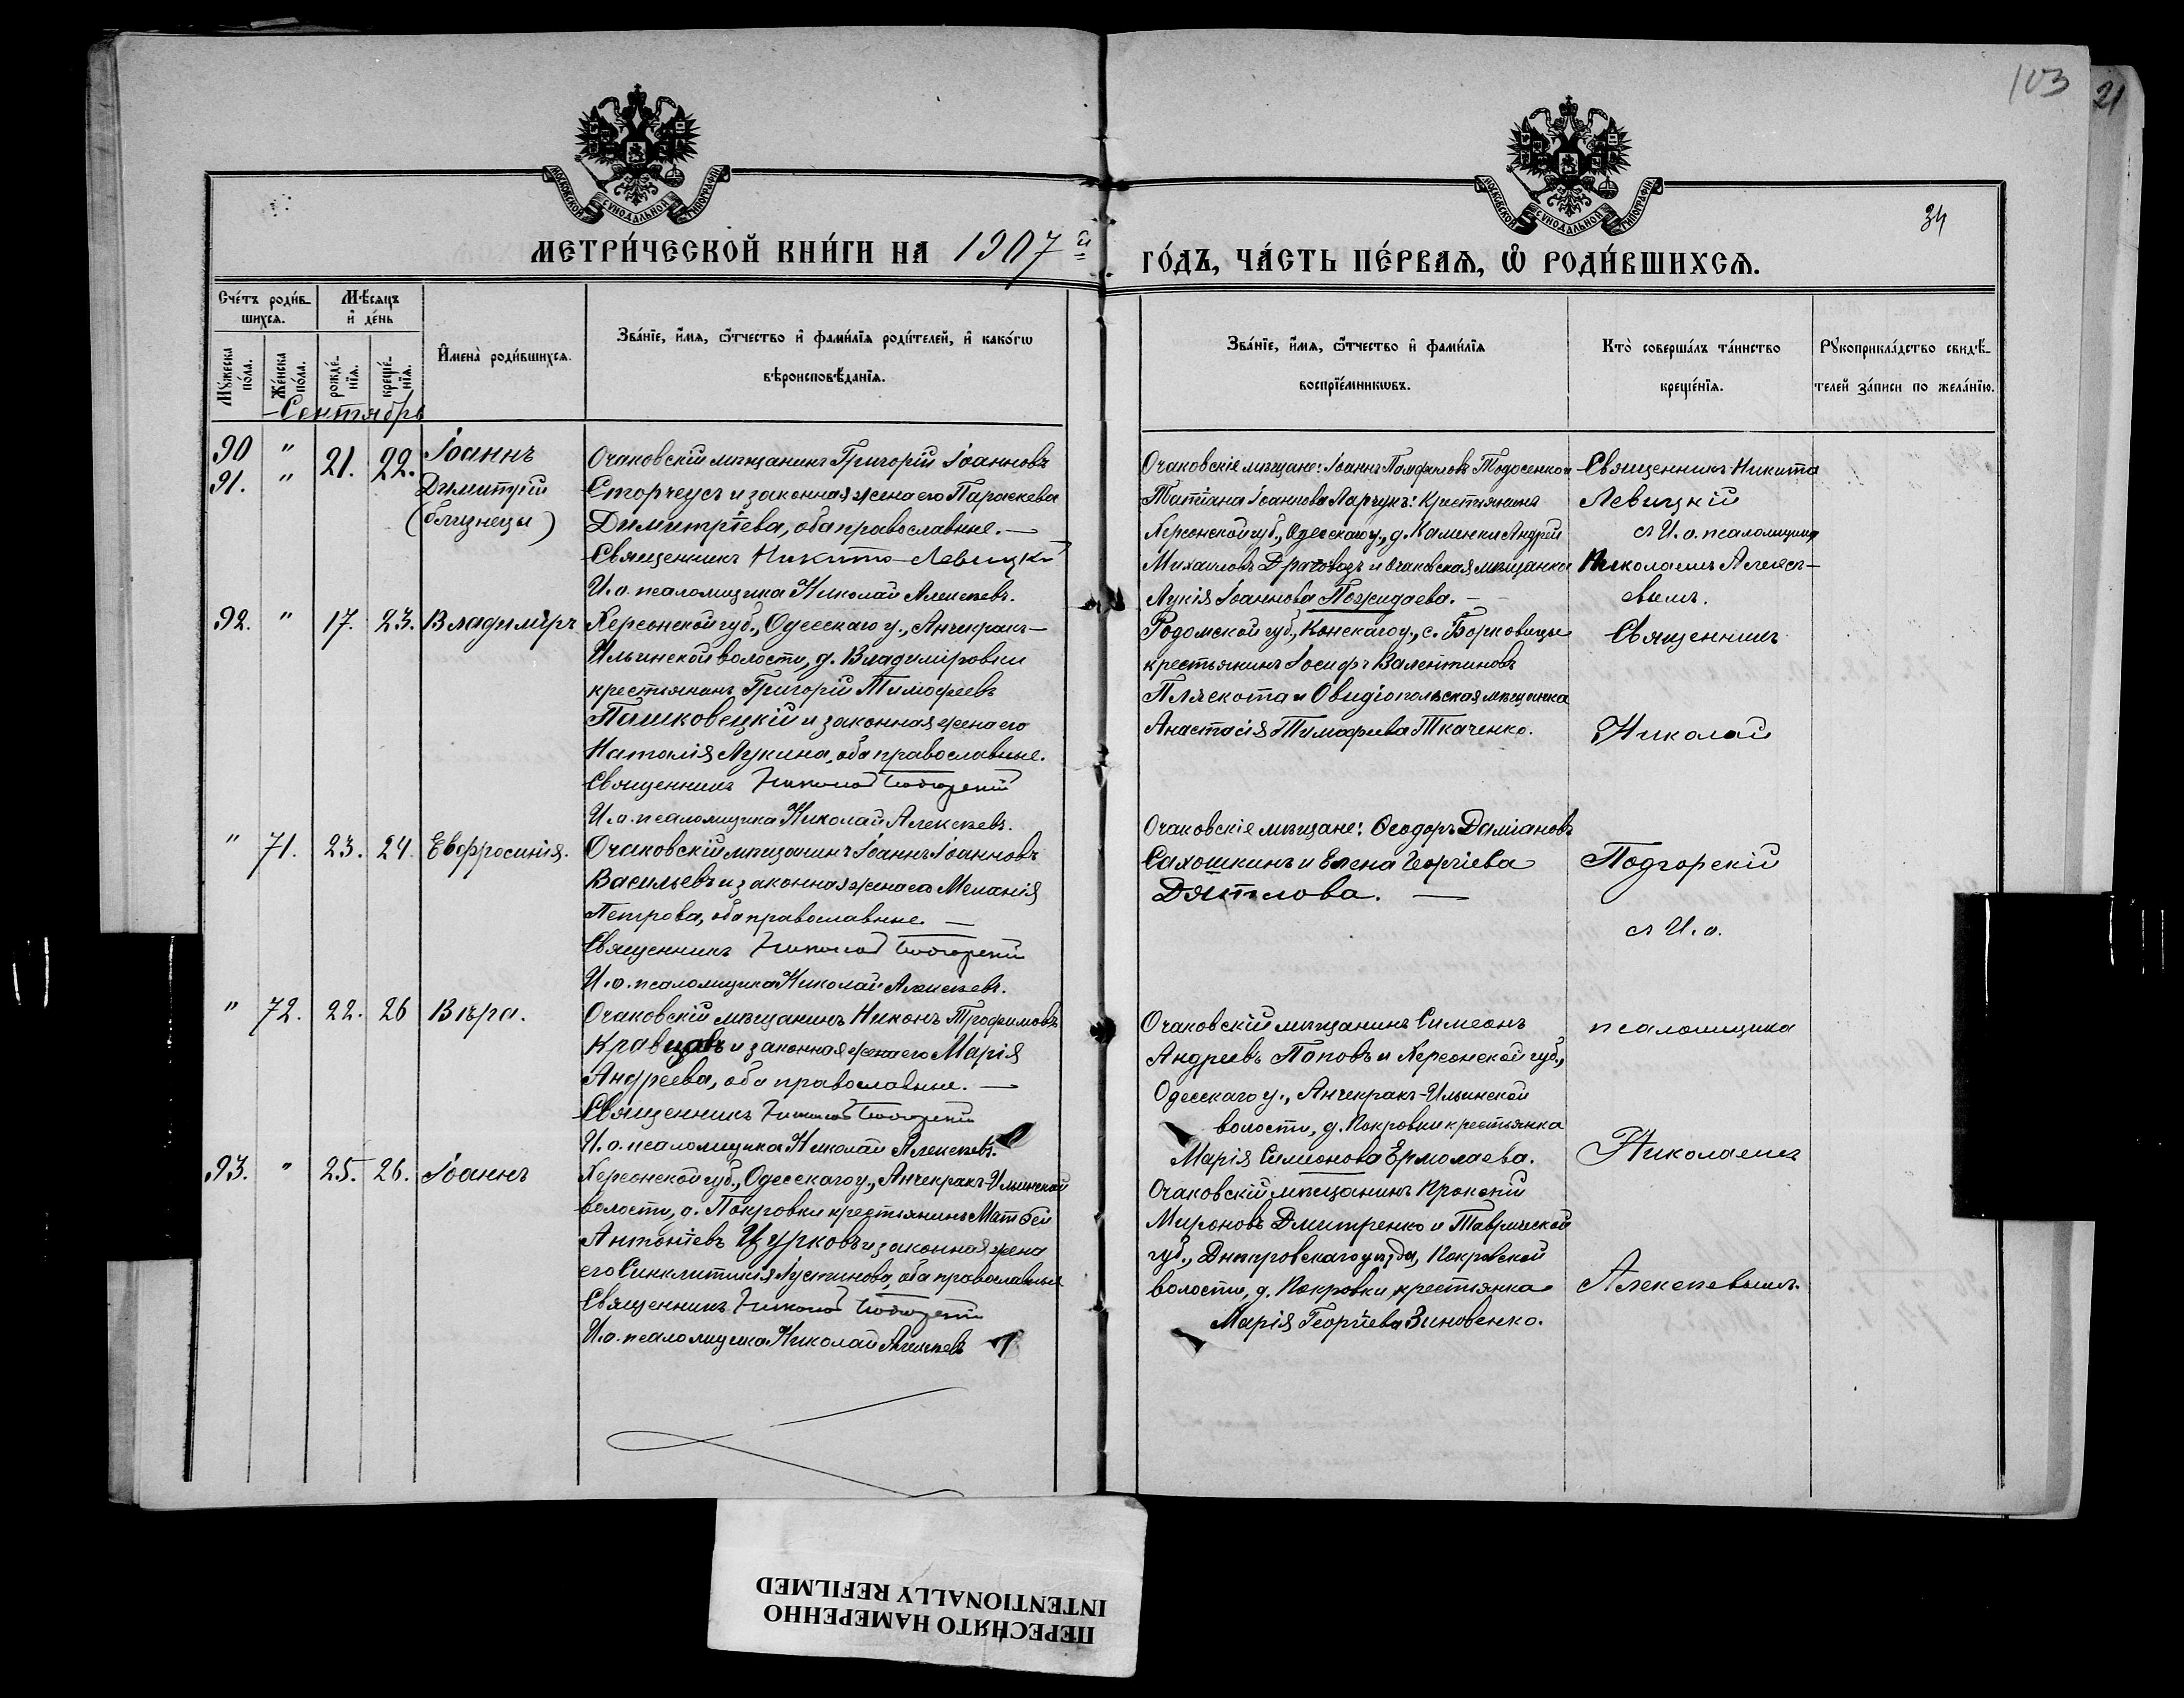 103
21
34
МОСКОВСКОЙ СѴНОДАЛЬНОЙ ТИПОГРАФІИ
МОСКОВСКОЙ СѴНОДАЛЬНОЙ ТИПОГРАФІИ
МЕТРИ́ЧЕСКОЙ КНИ́ГИ НА 1907 й
ГО́ДЪ, ЧА́СТЬ ПЕ́РВАѦ, Ѡ҆ РОДИ́ВШИХСѦ.
Сче́тъ роди́в-
шихсѧ.
Мѣ́сѧцъ
и҆ де́нь
Мꙋ́жеска
по́ла.
Же́нска
по́ла.
рожде́-
нїѧ.
креще́-
нїѧ.
И҆мена̀ роди́вшихсѧ.
Зва́нїе, и҆́мѧ, ѻ҆́тчество и҆ фами́лїѧ роди́телей, и҆ како́гѡ
вѣроисповѣ́данїѧ.
Зва́нїе, и҆́мѧ, ѻ҆́тчество и҆ фами́лїѧ
воспрїе́мникѡвъ.
Кто̀ соверша́лъ та́инство
креще́нїѧ.
Рꙋкоприкла́дство свидѣ́-
телей за́писи по жела́нїю.
Сентябрь
90 " 21. 22. Іоаннъ
91. " Димитрій
(близнецы)
Очаковскій мѣщанинъ Григорій Іоанновъ
Сторчеусъ и законная жена его Параскева
Димитріева, оба православные. —
Священникъ Никита Левицкій
И. о. псаломщика Николай Алексѣевъ.
Очаковскіе мѣщане: Іоаннъ Памфиловъ Тодосенко и
Татіана Іоаннова Ларчукъ: крестьянинъ
Херсонской губ., Одесскаго у., д. Каменки Андрей
Михаиловъ и Очаковская мѣщанка
Лукія Іоаннова Пожидаева. —
Священникъ Никита
Левицкій
съ И. о. псаломщика
Николаемъ Алексѣ-
евымъ.
92. " 17. 23. Владиміръ
Херсонской губ., Одесскаго у., Анчекракъ-
Ильинской волости, д. Владиміровки
крестьянинъ Григорій Тимофеевъ
Пашковецкій и законная жена его
Наталія Лукина, оба православные.
Священникъ Николай Подгорскій
И. о. псаломщика Николай Алексѣевъ.
Родомской губ., Конскаго у., с. Борковицы
крестьянинъ Іосифъ Валентиновъ
Пляскота и Овидіопольская мѣщанка
Анастасія Тимофеева Ткаченко.
Священникъ
Николай
" 71. 23. 24. Евфросинія.
Очаковскій мѣщанинъ Іоаннъ Іоанновъ
Васильевъ и законная жена его Меланія
Петрова, оба православные. —
Священникъ Николай Подгорскій
И. о. псаломщика Николай Алексѣевъ.
Очаковскіе мѣщане: Ѳеодоръ Даміановъ
Сахошкинъ и Елена Георгіева
Дятлова. —
Подгорскій
съ И. о.
" 72. 22. 26 Вѣра.
Очаковскій мѣщанинъ Никонъ Трофимовъ
Кравцовъ и законная жена его Марія
Андреева, оба православные. —
Священникъ Николай Подгорскій
И. о. псаломщика Николай Алексѣевъ.
Очаковскій мѣщанинъ Симеонъ
Андреевъ Поповъ и Херсонской губ.,
Одесскаго у., Анчекракъ-Ильинской
волости, д. Покровки крестьянка
Марія Симеонова Ермолаева.
псаломщика
Николаемъ
93. " 25. 26. Іоаннъ
Херсонской губ., Одесскаго у., Анчекракъ-Ильинской
волости, д. Покровки крестьянинъ Матѳей
Антоніевъ Цурковъ и законная жена
его Синклитикія Іустинова, оба православные
Священникъ Николай Подгорскій
И. о. псаломщика Николай Алексѣевъ
Очаковскій мѣщанинъ Прокопій
Мироновъ Дмитренко и Таврической
губ., Днѣпровскаго уѣзда, Покровской
волости, д. Покровки, крестьянка
Марія Георгіева Зиновенко.
Алексѣевымъ.
ПЕРЕСНЯТО НАМЕРЕННО
INTENTIONALLY REFILMED